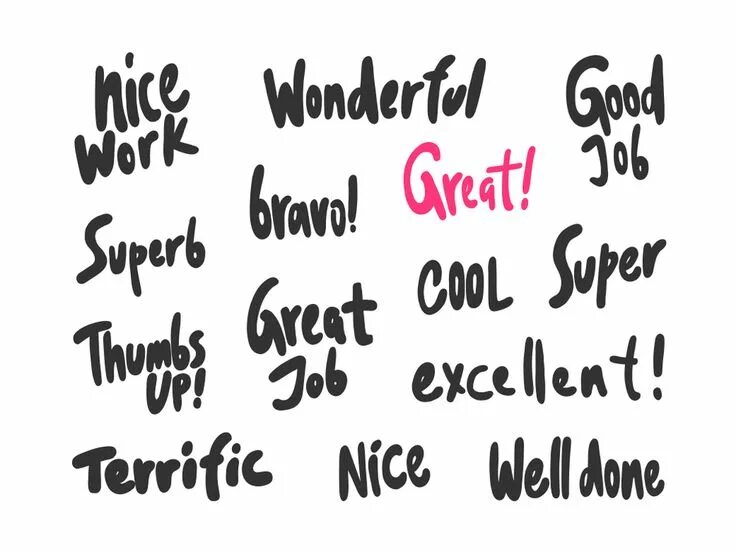 nice
work
Wonderful
Good
Job
bravo!
Great!
Superb
COOL
Super
Great
Job
Thumbs
UP!
excellent!
Terrific
Nice
Well done